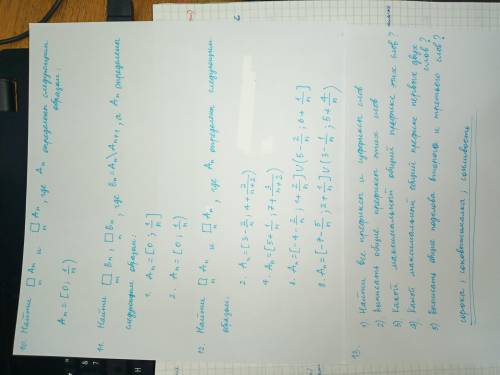 10. Найти □ Aₙ и □ Aₙ, где Aₙ определен следующим
образом:
Aₙ = [0; 1/n)
11. Найти □ Bₙ, □ Bₙ, где Bₙ = Aₙ \ Aₙ₊₁, а Aₙ определена
следующим образом:
1. Aₙ = [0; 1/n]
2. Aₙ = [0; 1/n)
12. Найти □ Aₙ и □ Aₙ, где Aₙ определена следующим
образом:
2. Aₙ = [3 - 2/n; 4 + 2/(n+2))
4. Aₙ = [5 + 1/n; 7 + 3/(n+2))
6. Aₙ = [-4 - 2/n; 1 + 2/n] ∪ (5 - 2/n; 6 + 1/n]
8. Aₙ = [-7 - 5/n; 2 + 1/n] ∪ (3 - 1/n; 5 + 4/n)
13. 1) Найти все префиксы и суффиксы слов
2) Выписать общие префиксы этих слов
3) Какой максимальный общий префикс этих слов?
4) Какой максимальный общий префикс первых двух
слов?
5) Выписать общие подслова второго и третьего слов?
сорока;